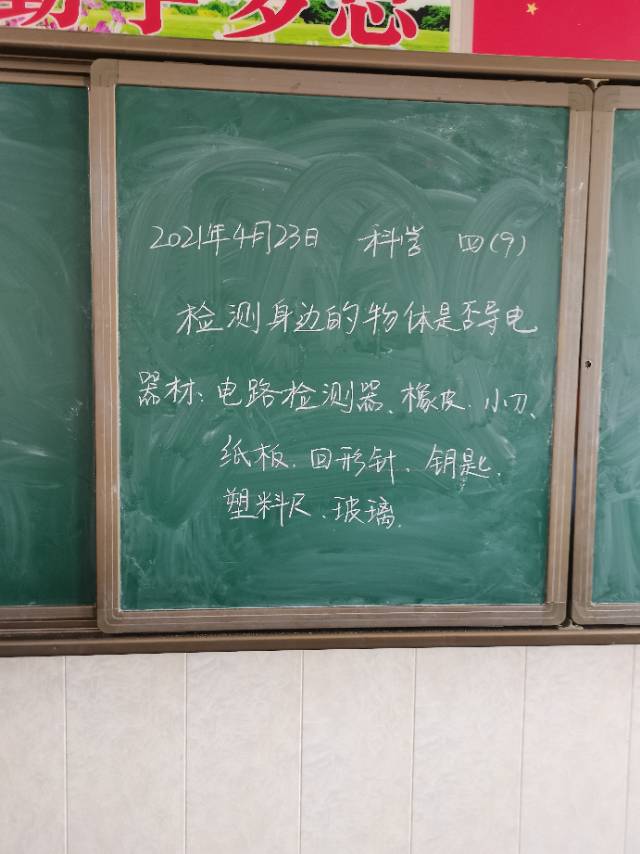 2021年4月23日 科学 四(9)
检测身边的物体是否导电
器材：电路检测器、橡皮、小刀、
纸板、回形针、钥匙、
塑料尺、玻璃.